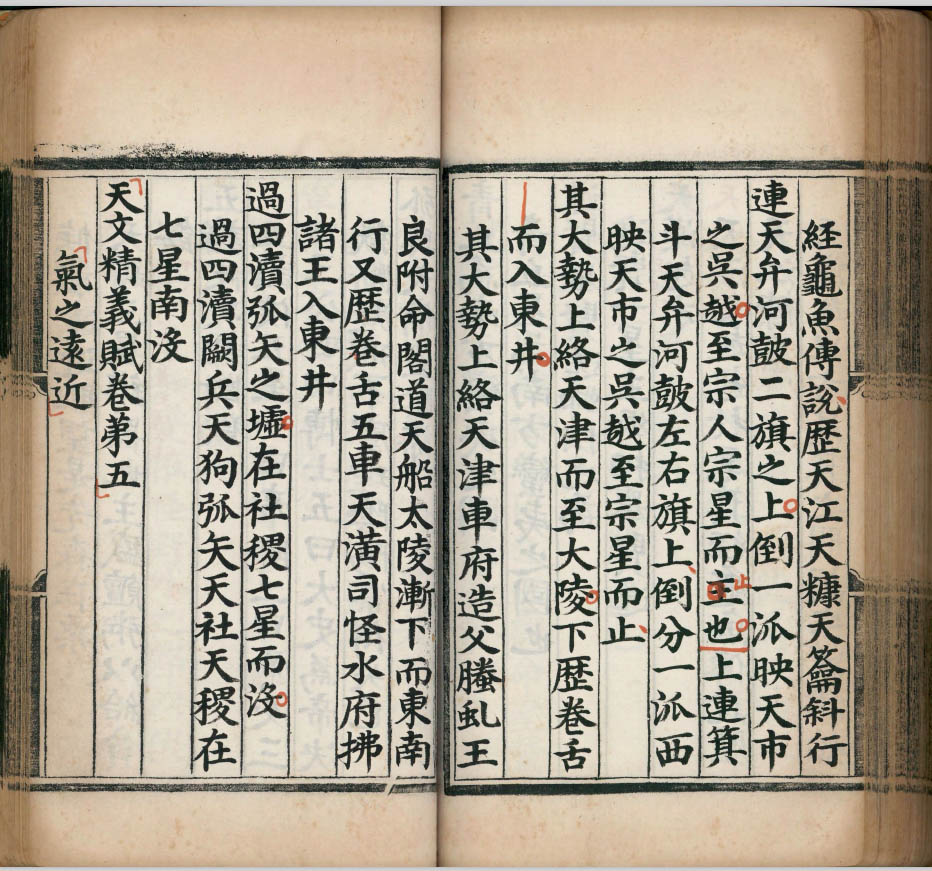 経龜魚傳說歴天江天糠天籥斜行
連天弁河皷二旗之上倒一派映天市
之吳越至宗人宗星而主也上連箕
止
斗天弁河皷左右旗上倒分一派西
映天市之吳越至宗星而止
其大勢上絡天津而至大陵下歴卷舌
而入東井
其大勢上絡天津車府造父螣虬王
良附命閣道天船太陵漸下而東南
行又歴卷古五車天潢司怪水府拂
諸王入東井
過四瀆弧矢之墟在社稷七星而沒
過四瀆闕兵天狗弧矢天社天稷在
七星南沒
天文精義賦卷弟五
氣之遠近